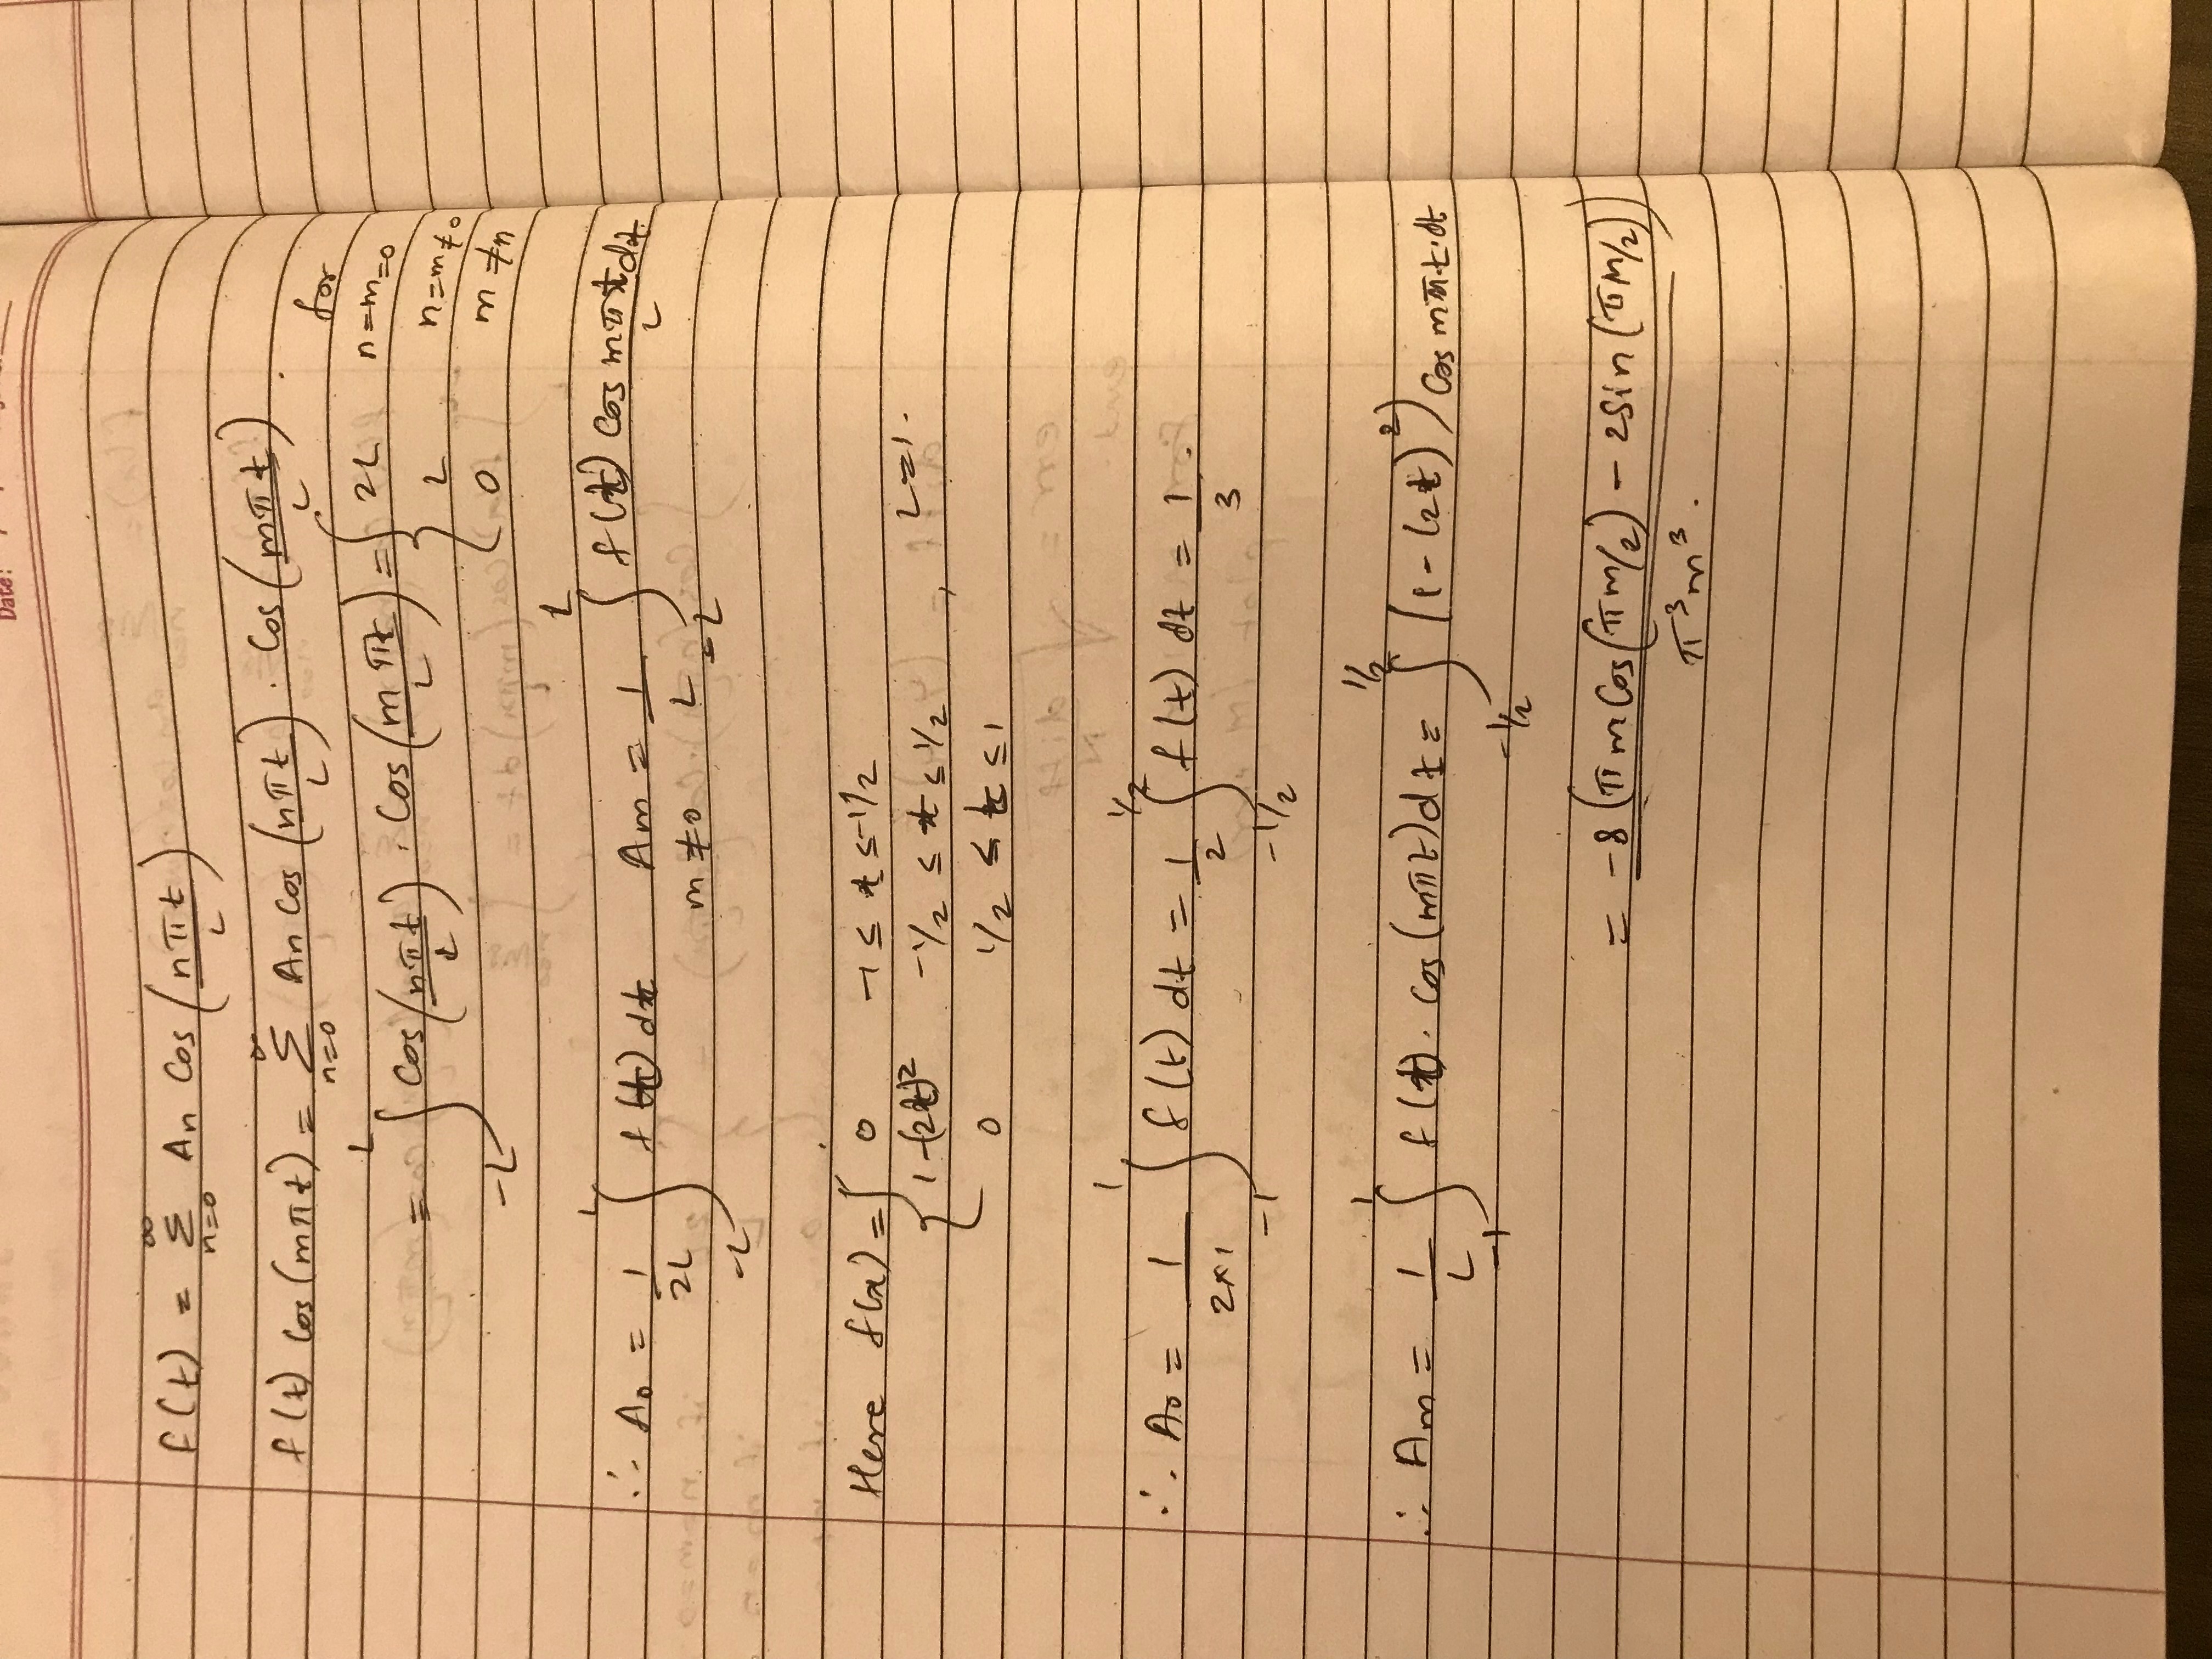 Date:
f(t) = ∞ Σ n=0 An Cos (nπt / L)
f(t) Cos (mπt) = ∞ Σ n=0 An Cos (nπt / L) . Cos (mπt / L)
= L ∫ -L Cos (nπt / L) . Cos (mπt / L) = { 2L for n=m=0
L n=m≠0
0 m≠n
∴ A0 = 1/2L L ∫ -L f(t) dt Am = 1/L L ∫ -L f(t) Cos mπt/L dt.
m≠0
Here f(x) = { 0 -1 ≤ t ≤ -1/2
1-(2t)² -1/2 ≤ t ≤ 1/2 , L=1.
0 1/2 ≤ t ≤ 1
∴ A0 = 1/2×1 1 ∫ -1 f(t) dt = 1/2 1/2 ∫ -1/2 f(t) dt = 1/3.
∴ Am = 1/L 1 ∫ -1 f(t). Cos (mπt) dt = 1/2 ∫ -1/2 (1-(2t)²) Cos mπ.t.dt
= -8 (πm Cos (πm/2) - 2 Sin (πm/2)) / π³m³.